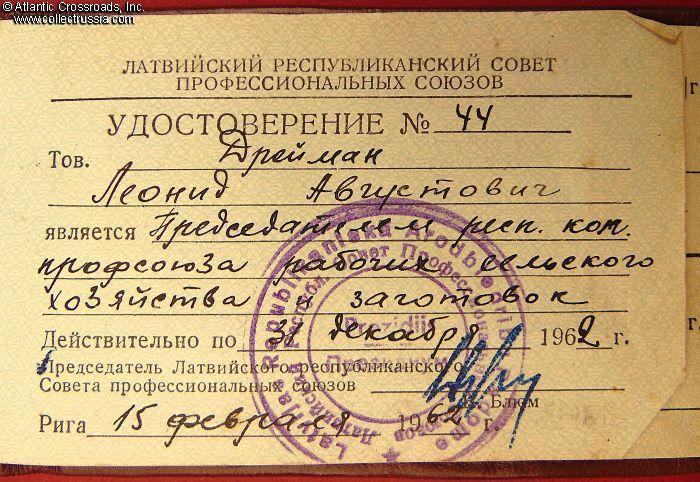 © Atlantic Crossroads, Inc.
www.collectrussia.com
ЛАТВИЙСКИЙ РЕСПУБЛИКАНСКИЙ СОВЕТ
ПРОФЕССИОНАЛЬНЫХ СОЮЗОВ
УДОСТОВЕРЕНИЕ № 44
Тов. Дрейман
Леонид Августович
является Председателем респ. ком.
профсоюза рабочих сельского
хозяйства и заготовок
Действительно по 31 декабря 1962 г.
Председатель Латвийского республиканского
Совета профессиональных союзов
Блюм
Рига 15 февраля 1962 г.
Prezidijs
Президиум